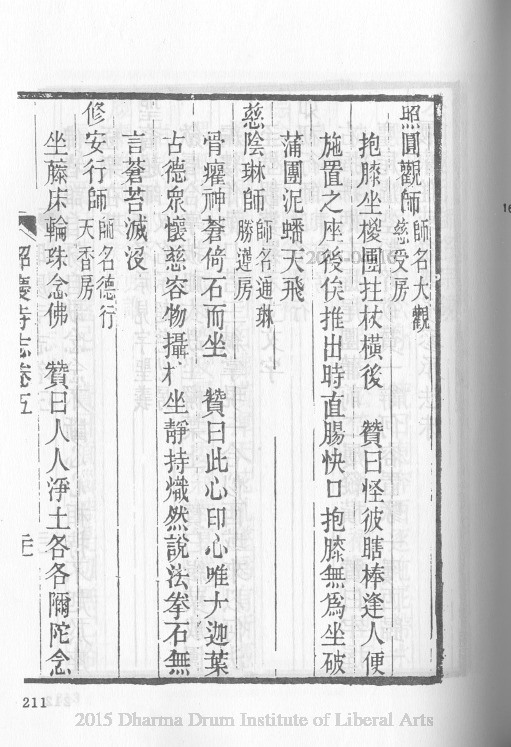 照圓觀師師名大觀慈受房
抱膝坐椶團拄杖橫後　贊曰怪彼瞎棒逢人便
施置之座後俟推出時直腸快口抱膝無為坐破
蒲團泥蟠天飛
慈陰琳師師名通琳勝蓮房
骨癯神蒼倚石而坐　贊曰此心印心唯大迦葉
古德眾懷慈容物攝才坐靜持熾然說法拳石無
言蒼苔滅沒
修安行師師名德行天香房
坐藤床輪珠念佛　贊曰人人淨土各各彌陀念
昭慶寺志卷五
211
2015 Dharma Drum Institute of Liberal Arts